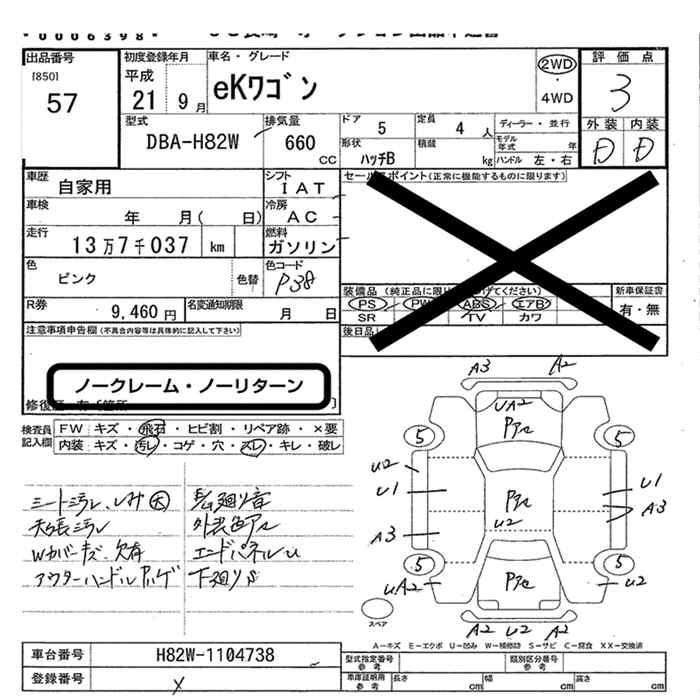 0006398
出品番号
[850]
57
初度登録年月
平成
21 9 月
車名・グレード
eKワゴン
2WD
4WD
評価点
3
外装 内装
D D
型式
DBA-H82W
排気量
660
CC
ドア 5
定員 4 人
ディーラー・並行
形状
ハッチB
積載
kg
モデル年式 年
ハンドル 左・右
車歴
自家用
シフト
IAT
車検
年 月( 日)
冷房
AC
走行
13万7千037 km
燃料
ガソリン
色
ピンク
色替
色コード
P38
R券
9,460 円
名変通知期限
月 日
セールスポイント(正常に機能するものに限ります)
装備品(純正品に限り
げてください)
PS PW ABS エアB
SR TV カワ
新車保証書
有・無
後日品
注意事項申告欄(不具合内容等は具体的に記入して下さい)
ノークレーム・ノーリターン
修復歴
検査員記入欄
FW キズ・飛石・ヒビ割・リペア跡・×要
内装 キズ・汚レ・コゲ・穴・スレ・キレ・破レ
シート汚レ、シミ 大
天張汚レ
Wカバーキズ、欠有
アウターハンドル
下廻り音
外装色アセ
エンドパネルU
下廻りS
A3 A2
UA2
Pアセ
5 5
U2
U1
Pアセ
U2
U1
A3
A3
5 5
UA2
Pアセ
U2
A2 U2 A2
スペア
A-キズ E-エクボ U-凹み W-補修跡 S-サビ C-腐食 XX-交換済
車台番号
H82W-1104738
登録番号
型式指定番号
参考
類別区分番号
参考
車庫証明用
参考
長さ cm
幅 cm
高さ cm